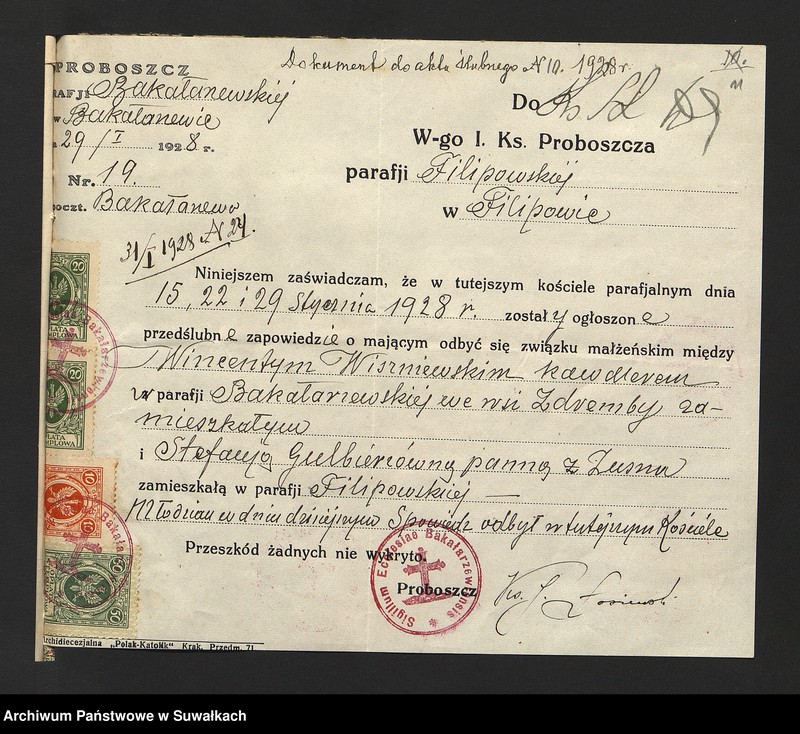 Dokument do aktu ślubnego N 10. 1928 r.
10.
11
PROBOSZCZ
PARAFJI Bakałarzewskiej
w Bakałarzewie
29/I 1928 r.
Nr. 19.
poczt. Bakałarzewo
31/I 1928 N 24.
Do
W-go I. Ks. Proboszcza
parafji Filipowskiej
w Filipowie
Niniejszem zaświadczam, że w tutejszym kościele parafjalnym dnia
15, 22 i 29 Stycznia 1928 r. zostały ogłoszone
przedślubne zapowiedzie o mającym odbyć się związku małżeńskim między
Wincentym Wiszniewskim kawalerem
w parafji Bakałarzewskiej we wsi Zdremby za-
mieszkałym
i Stefanją Gulbierówną panną z Zusna
zamieszkałą w parafji Filipowskiej —
Młodzian w dniu dzisiejszym Spowiedź odbył w tutejszym Kościele
Przeszkód żadnych nie wykryto.
Proboszcz
Ks. J.
Sigillum Ecclesiae Bakałarzewensis
20
20
10
10
50
50
Archidiecezjalna „Polak-Katolik" Krak. Przedm. 71
Archiwum Państwowe w Suwałkach